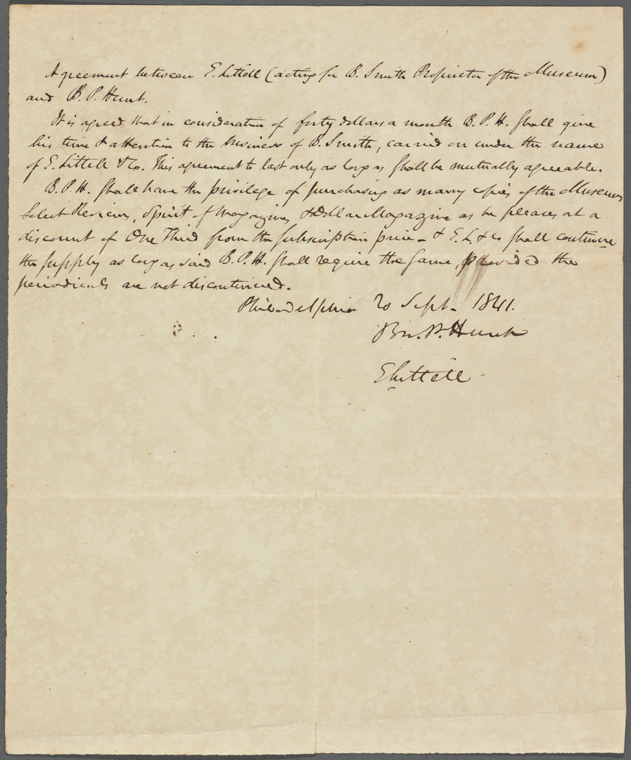 Agreement between E. Littell (acting for B. Smith Proprietor of the Museum)
and B. P. Hunt.
It is agreed that in consideration of forty dollars a month B. P. H. shall give
his time & attention to the business of B. Smith, carried on under the name
of E. Littell & Co. This agreement to last only as long as shall be mutually agreeable.
B. P. H. shall have the privilege of purchasing as many copies of the Museum,
Select Reviews, Spirit of Magazines, & Dollar Magazine as he pleases at a
discount of One Third from the subscription price - & E. L. & Co shall continue
the supply as long as said B. P. H. shall require the same, provided the
periodicals are not discontinued.
Philadelphia 20 Sept. 1841.
Bn. P. Hunt
E Littell